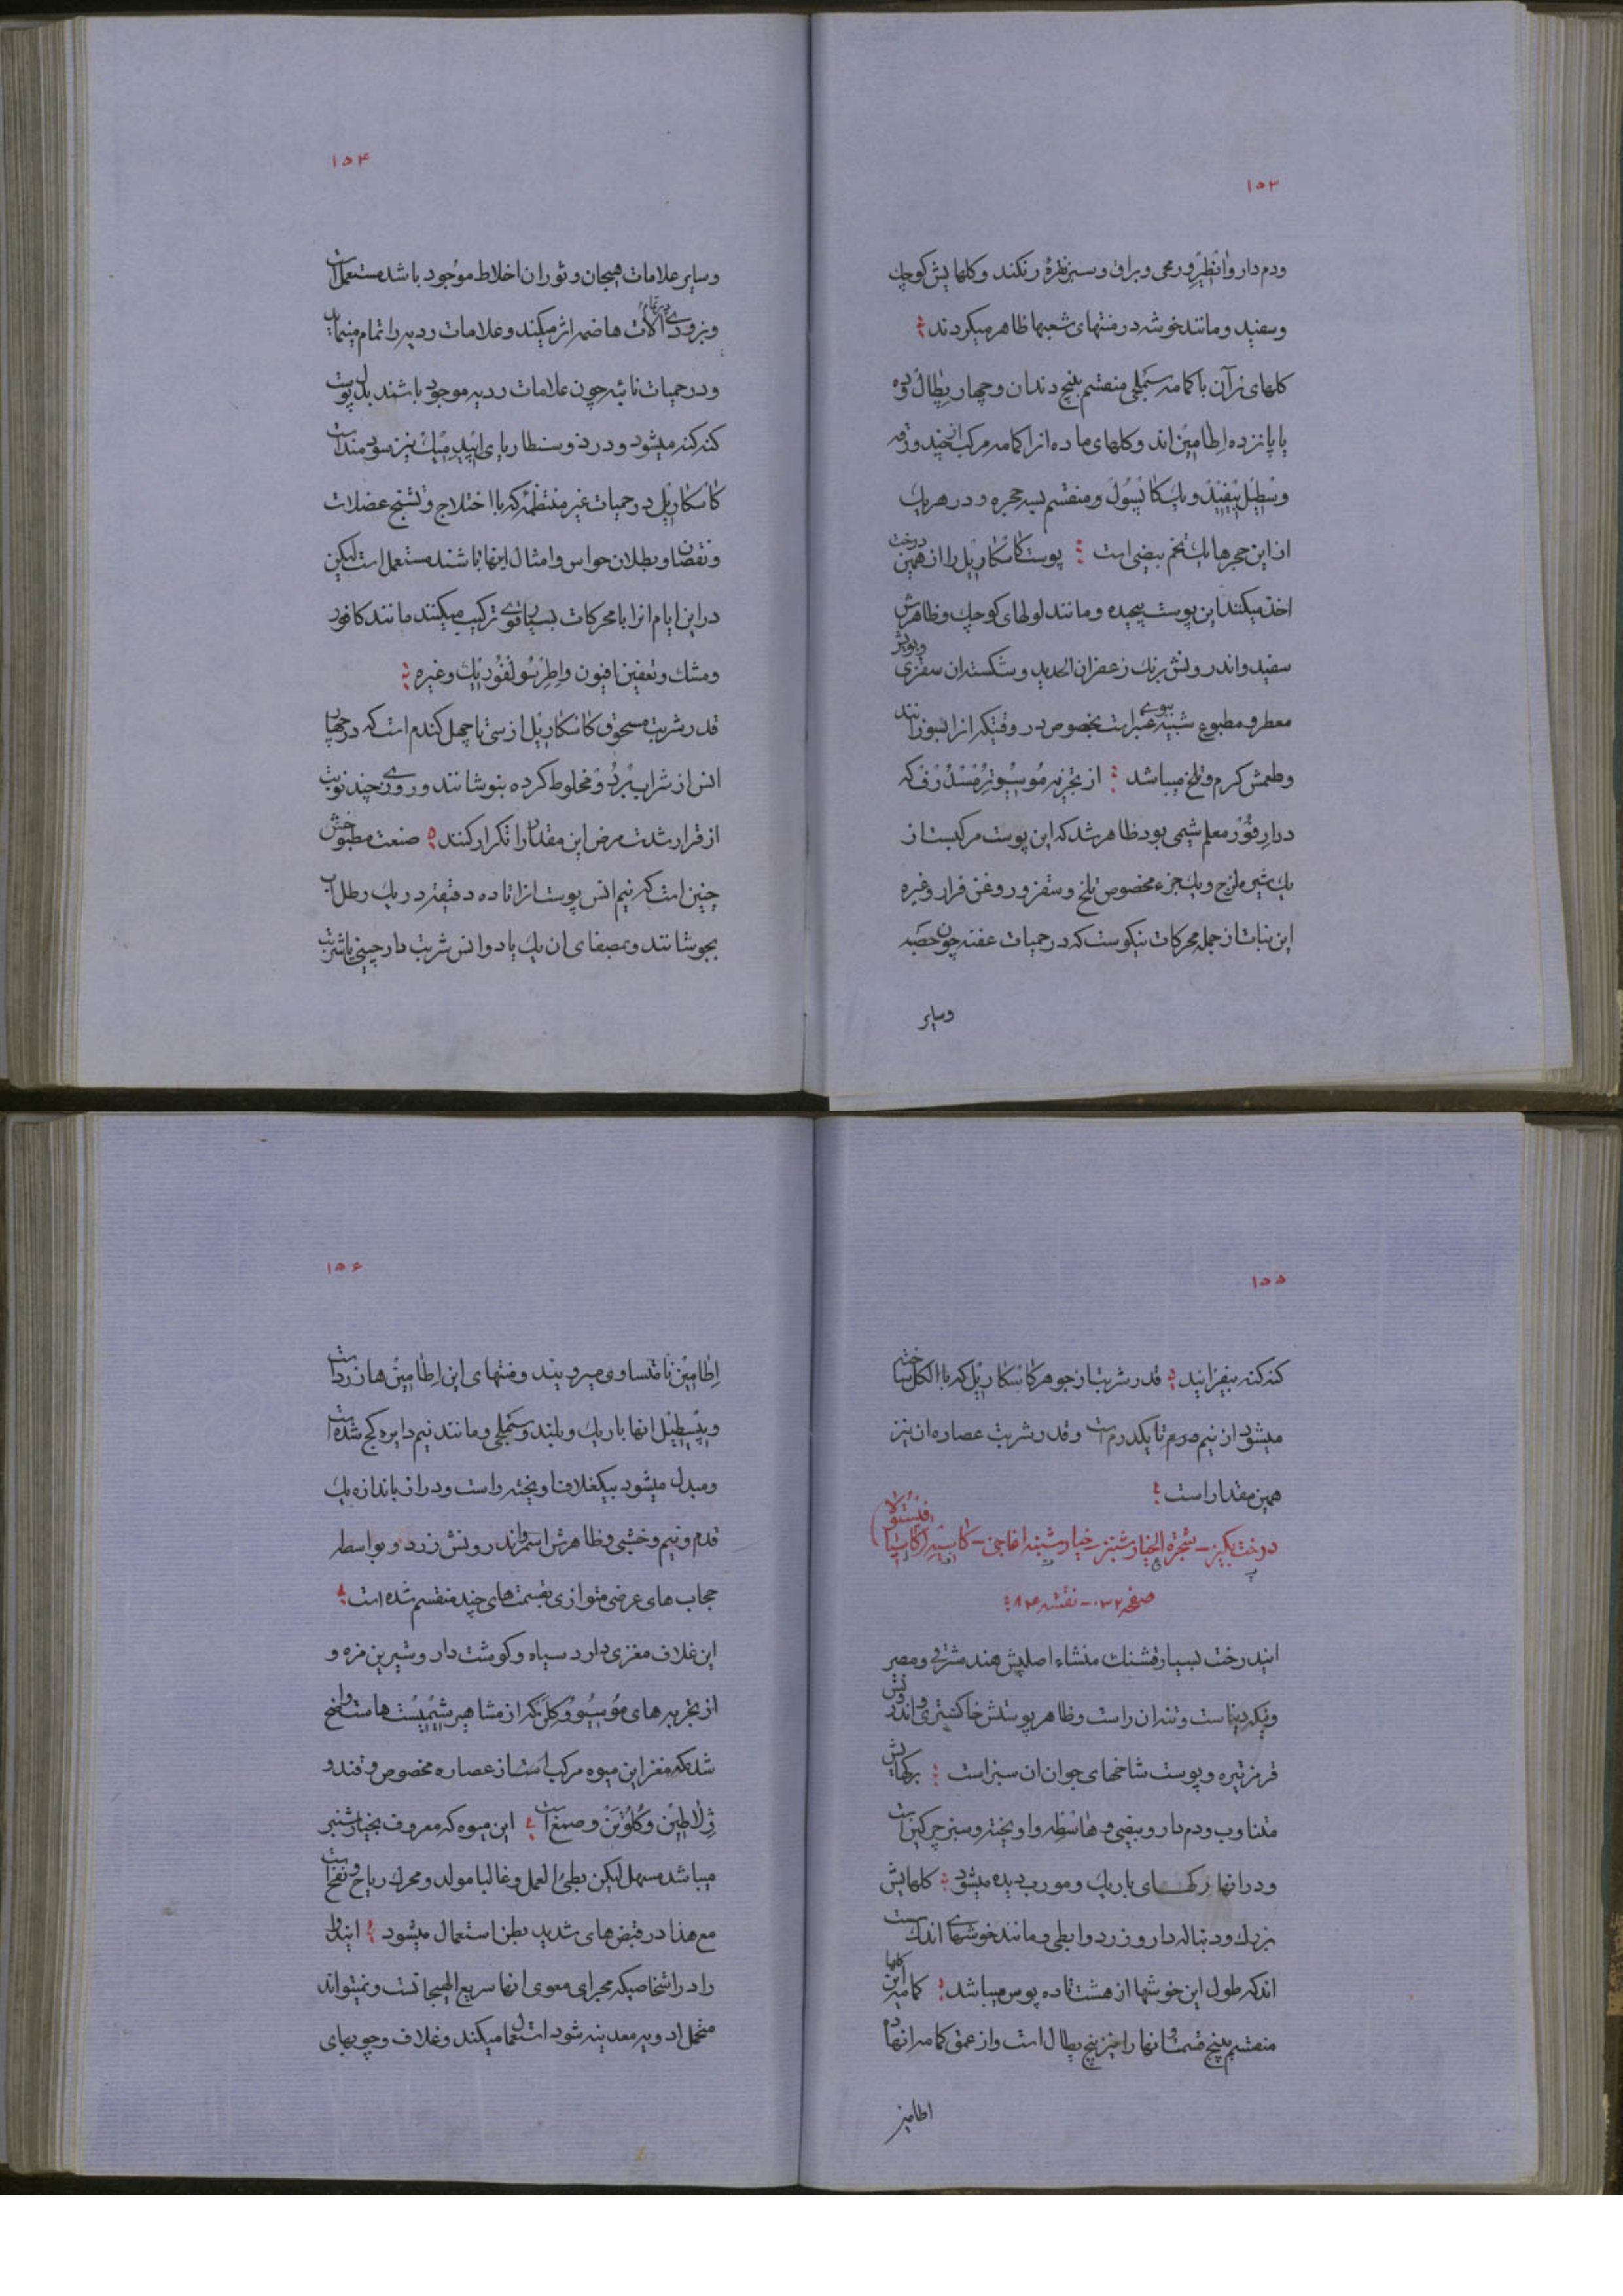 ۱۵۳
ودم دار وانطرور محی وبراق وسبز نقره رنكند وكلهایش كوچك
وسفید ومانند خوشه در منتهای شعبها ظاهر میكردند
كلهای نر آن با كامه سَتمبلی منقسم بپنج دندان وچهار پطال بوده
با پانزده اِطامین اند وكلهای ماده از اكامه مركب از چند ورقه
وپسطیل بیفید ویك كاپسول ومنقسم بسه حجره ودر هریك
از این حجرها یك تخم بیضی است پوست كاسكاریل را از همین درخت
اخذ میكنند این پوست پیچیده ومانند لولهای كوچك وظاهرش
سفید واندرونش برنك زعفران الحدید وشكسته ان سقزی وبویش
معطر ومطبوع شبیه ببوی عنبر است بخصوص در وقتیكه انرا بسوزانند
وطعمش كرم وتلخ میباشد از تجزیه مُوسیُو تِرُمسْدُرف كه
در ارفورْ معلم شیمی بود ظاهر شد كه این پوست مركبست از
یك شیره لزج ویك جزء مخصوص تلخ وسقز وروغن فرار وغیره
این نبات از جمله محركات نیكوست كه در حمیات عفنه چون حصبه
وسایر
۱۵۴
وسایر علامات هیجان وثوران اخلاط موجود باشد مستعمل است
وبزودی در تمام آلات هاضمه اثر میكند وعلامات ردیه را تمام مینماید
ودر حمیات نائبه چون علامات ردیه موجود باشند بدل پوست
كنه كنه میشود ودر دوسنطاریای اپیدمیك نیز سودمند است
كاسكاریل در حمیات غیر منتظمه كه با اختلاج وتشنج عضلات
ونقصان وبطلان حواس وامثال اینها باشند مستعمل است لیكن
در این ایام انرا با محركات بسیار قوی تركیب میكنند مانند كافور
ومشك وتعفین افیون واطِر سُولفُوریك وغیره
قدر شربت مسحوق كاسكاریل از سی تا چهل كندم است كه در چهار
انس از شراب بُردُو مخلوط كرده بنوشانند وروزی چند نوبت
از قرار شدت مرض این مقدار را تكرار كنند صنعت مطبوخش
چنین است كه نیم انس پوست انرا تا ده دقیقه در یك رطل آب
بجوشانند وبمصفای ان یك یا دو انس شربت دارچینی یا شربت
۱۵۵
كنه كنه بیفزایند قدر شربت از جوهر كاسكاریل كه با الكل ساخته
میشود از نیم درم تا یكدرم است وقدر شربت عصاره ان نیز
همین مقدار است
درخت بكبر - شجرة الخیار شنبر - خیار شنبه اغاجی - كاسیه (كاسیا فیستولا)
صفحه ۳۲ - نقشه ۸۳
ایندرخت بسیار قشنك منشاء اصلیش هند مشرقی ومصر
وینكی دنیاست وتنه ان راست وظاهر پوستش خاكستری واندرونش
قرمز تیره وپوست شاخهای جوان ان سبز است بركهایش
متناوب ودم دار وبیضی وهاشطه واویخته وسبز چركین است
ودر انها ركهای باریك ومورب دیده میشود كلهایش
بزرك ودنباله دار وزرد وابطی ومانند خوشهای اندكست
اند كه طول این خوشها از هشت تا ده پوس میباشد كامه این كلها
منقسم بپنج قسمت وانها را نیز پنج پطال است واز عمق كامه انها ده
اطامیز
۱۵۶
اِطامین نا متساوی میرویند ومنتهای این اطامین ها زرد است
وپیسطیل انها باریك وبلند وستمبلی ومانند نیم دایره كج شده است
ومبدل میشود بیك غلاف اویخته راست ودراز باندازه یك
قدم ونیم وخشبی وظاهرش اسمر واندرونش زرد وبواسطه
حجاب های عرضی متوازی بقسمت های چند منقسم شده است
این غلاف مغزی دارد سیاه وكوشت دار وشیرین مزه و
از تجزیه های مُوسیُو وكلن كه از مشاهیر شیمیست هاست واضح
شد كه مغز این میوه مركب است از عصاره مخصوص وقند و
ژلاطین وكُلوُتن وصمغ است این میوه كه معروف بخیار شنبر
میباشد مسهل لیكن بطیٔ العمل وغالبا مولد ومحرك ریاح ونفخ است
مع هذا در قبض های شدید بطن استعمال میشود ایندوا
را در اشخاصیكه مجرای معوی انها سریع الهیجانست ونمیتواند
متحمل ادویه معدنیه شود استعمال میكند وغلاف وچوبهای